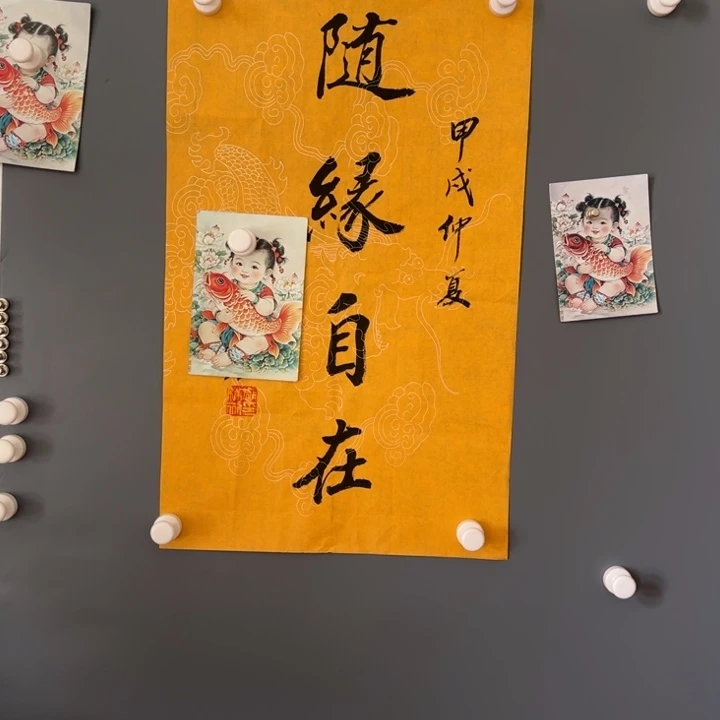 甲戌仲夏
随缘自在